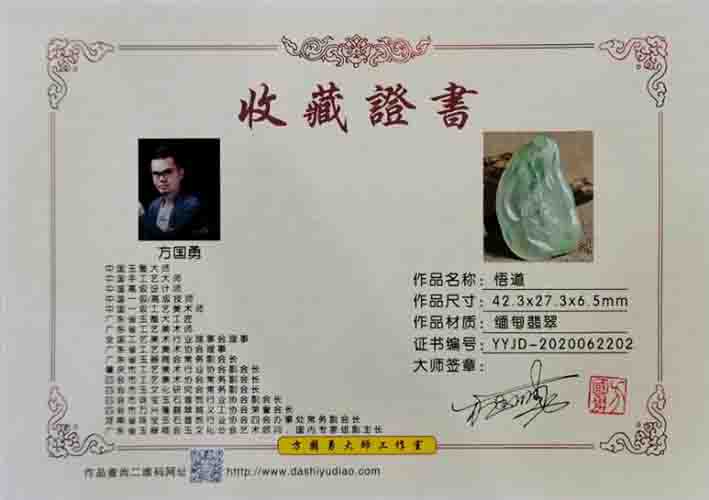 收藏證書
方国勇
中国玉雕大师
中国手工艺大师
中国高级设计师
中国一级/高级技师
中国一级工艺美术师
广东省玉雕大工匠
广东省工艺美术师
全国工艺美术行业理事会理事
广东省工艺美术协会理事
广东省玉器商会常务副会长
肇庆市工艺美术行业协会副会长
四会市工艺美术协会常务副会长
四会市玉文化研究会常务副会长
四会市珠宝玉石首饰行业协会副会长
四会市万兴隆翡翠城义工协会荣誉会长
河南省珠宝玉石首饰行业协会四会办事处常务副会长
广东省玉器商会玉文化分会艺术顾问、国内专家组副主任
作品名称：悟道
作品尺寸：42.3x27.3x6.5mm
作品材质：缅甸翡翠
证书编号：YYJD-2020062202
大师签章：
方國勇大师工作室
作品查询二维码网址
http://www.dashiyudiao.com/